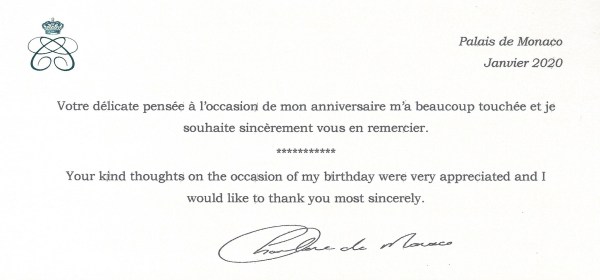 Palais de Monaco
Janvier 2020
Votre délicate pensée à l'occasion de mon anniversaire m'a beaucoup touchée et je
souhaite sincèrement vous en remercier.
***********
Your kind thoughts on the occasion of my birthday were very appreciated and I
would like to thank you most sincerely.
Charlene de Monaco